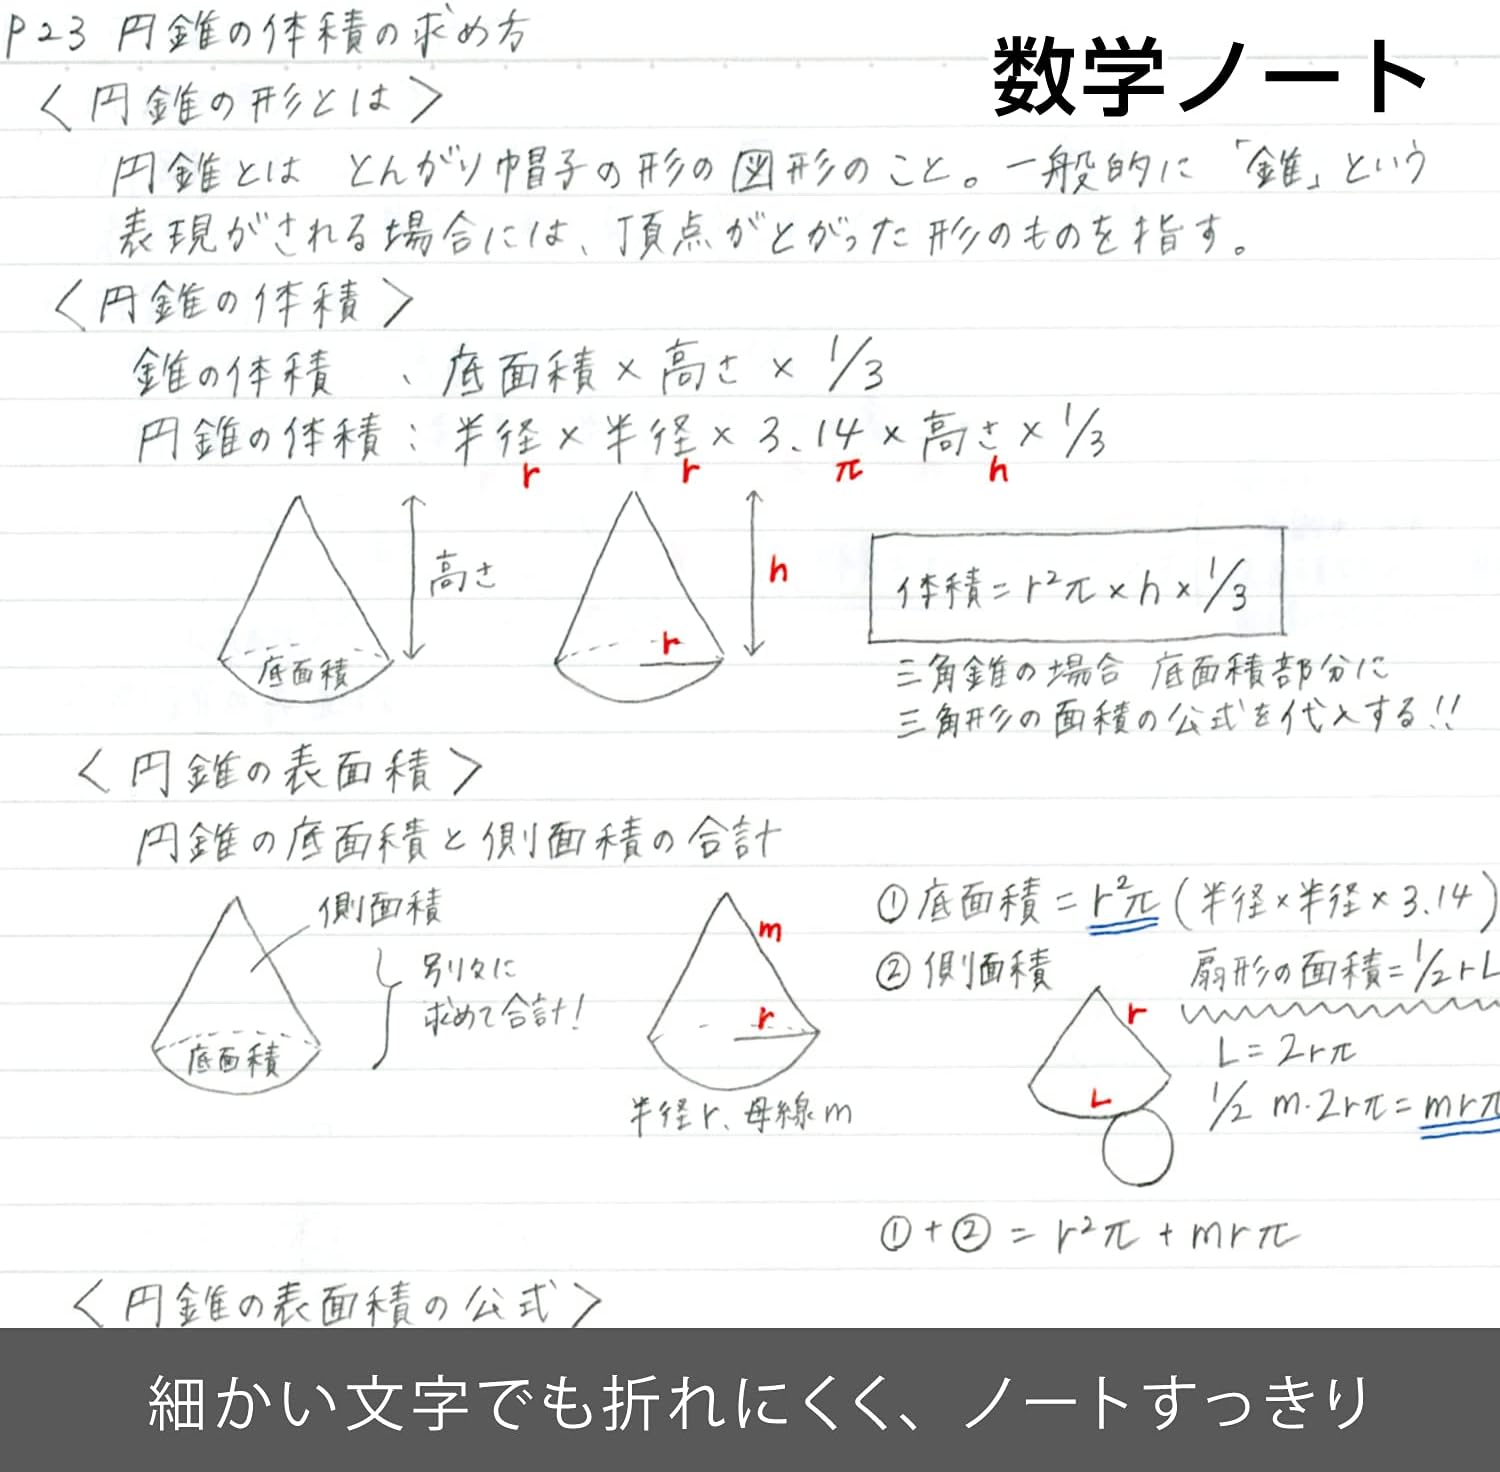 P23 円錐の体積の求め方
数学ノート
〈円錐の形とは〉
円錐とは とんがり帽子の形の図形のこと。一般的に「錐」という
表現がされる場合には、頂点がとがった形のものを指す。
〈円錐の体積〉
錐の体積 、底面積×高さ×1/3
円錐の体積:半径×半径×3.14×高さ×1/3
r r π h
高さ
底面積
h
r
体積=r²π×h×1/3
三角錐の場合 底面積部分に
三角形の面積の公式を代入する!!
〈円錐の表面積〉
円錐の底面積と側面積の合計
側面積
底面積
別々に
求めて合計!
m
r
半径r、母線m
①底面積=r²π(半径×半径×3.14)
②側面積 扇形の面積=1/2rL
r
L
L=2rπ
1/2 m・2rπ=mrπ
①+②=r²π+mrπ
〈円錐の表面積の公式〉
細かい文字でも折れにくく、ノートすっきり